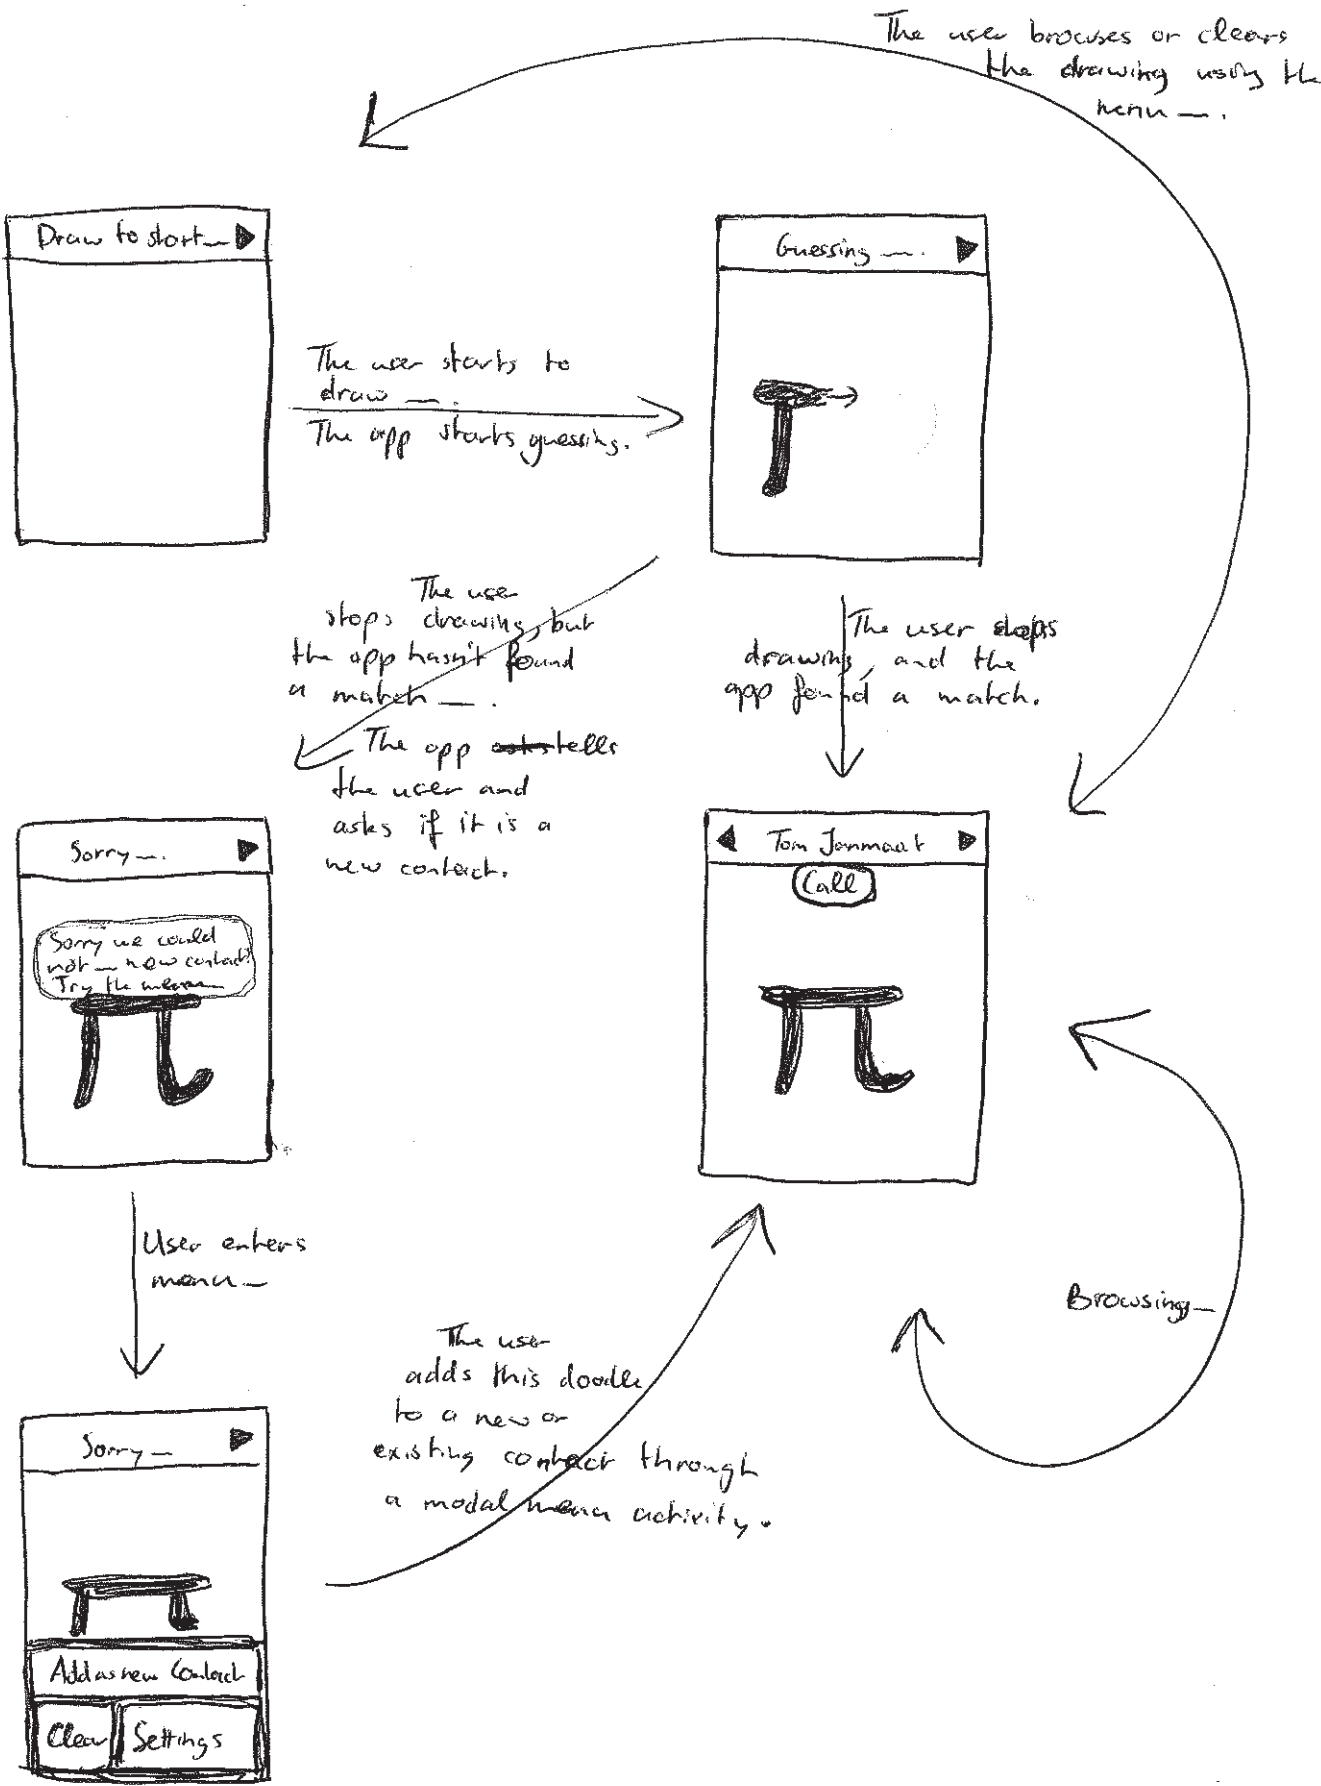 The user browses or clears
the drawing using the
menu —.
Draw to start—
Guessing —.
The user starts to
draw —.
The app starts guessing.
The user
stops drawing, but
the app hasn't found
a match —.
The app tells
the user and
asks if it is a
new contact.
The user stops
drawing, and the
app found a match.
Sorry —.
Sorry we could
not — new contact?
Try the menu
Tom Janmaat
Call
User enters
menu —
Browsing —
The user
adds this doodle
to a new or
existing contact through
a modal menu activity.
Sorry —
Add as new Contact
Clear
Settings